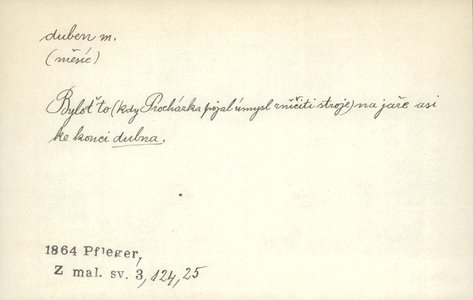 duben m.
(měsíc)
Byloť to (kdy Procházka pojal úmysl zničiti stroje) na jaře asi
ke konci dubna.
1864 Pfleger,
Z mal. sv. 3, 124, 25